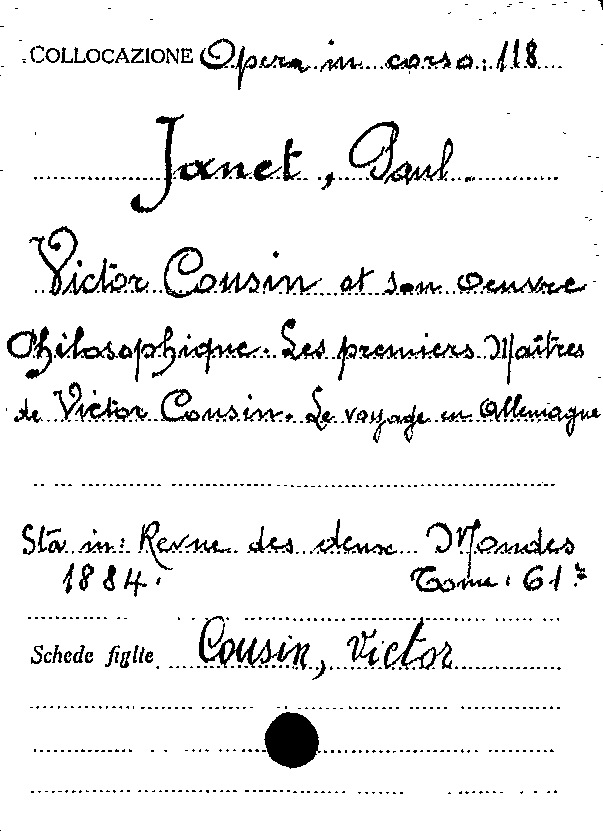 COLLOCAZIONE Opera in corso. 118
Janet, Paul.
Victor Cousin et son oeuvre
Philosophique. Les premiers Maîtres
de Victor Cousin. Le voyage en Allemagne
Sta in: Revue des deux Mondes
1884. Tome. 61.e
Schede figlie Cousin, Victor